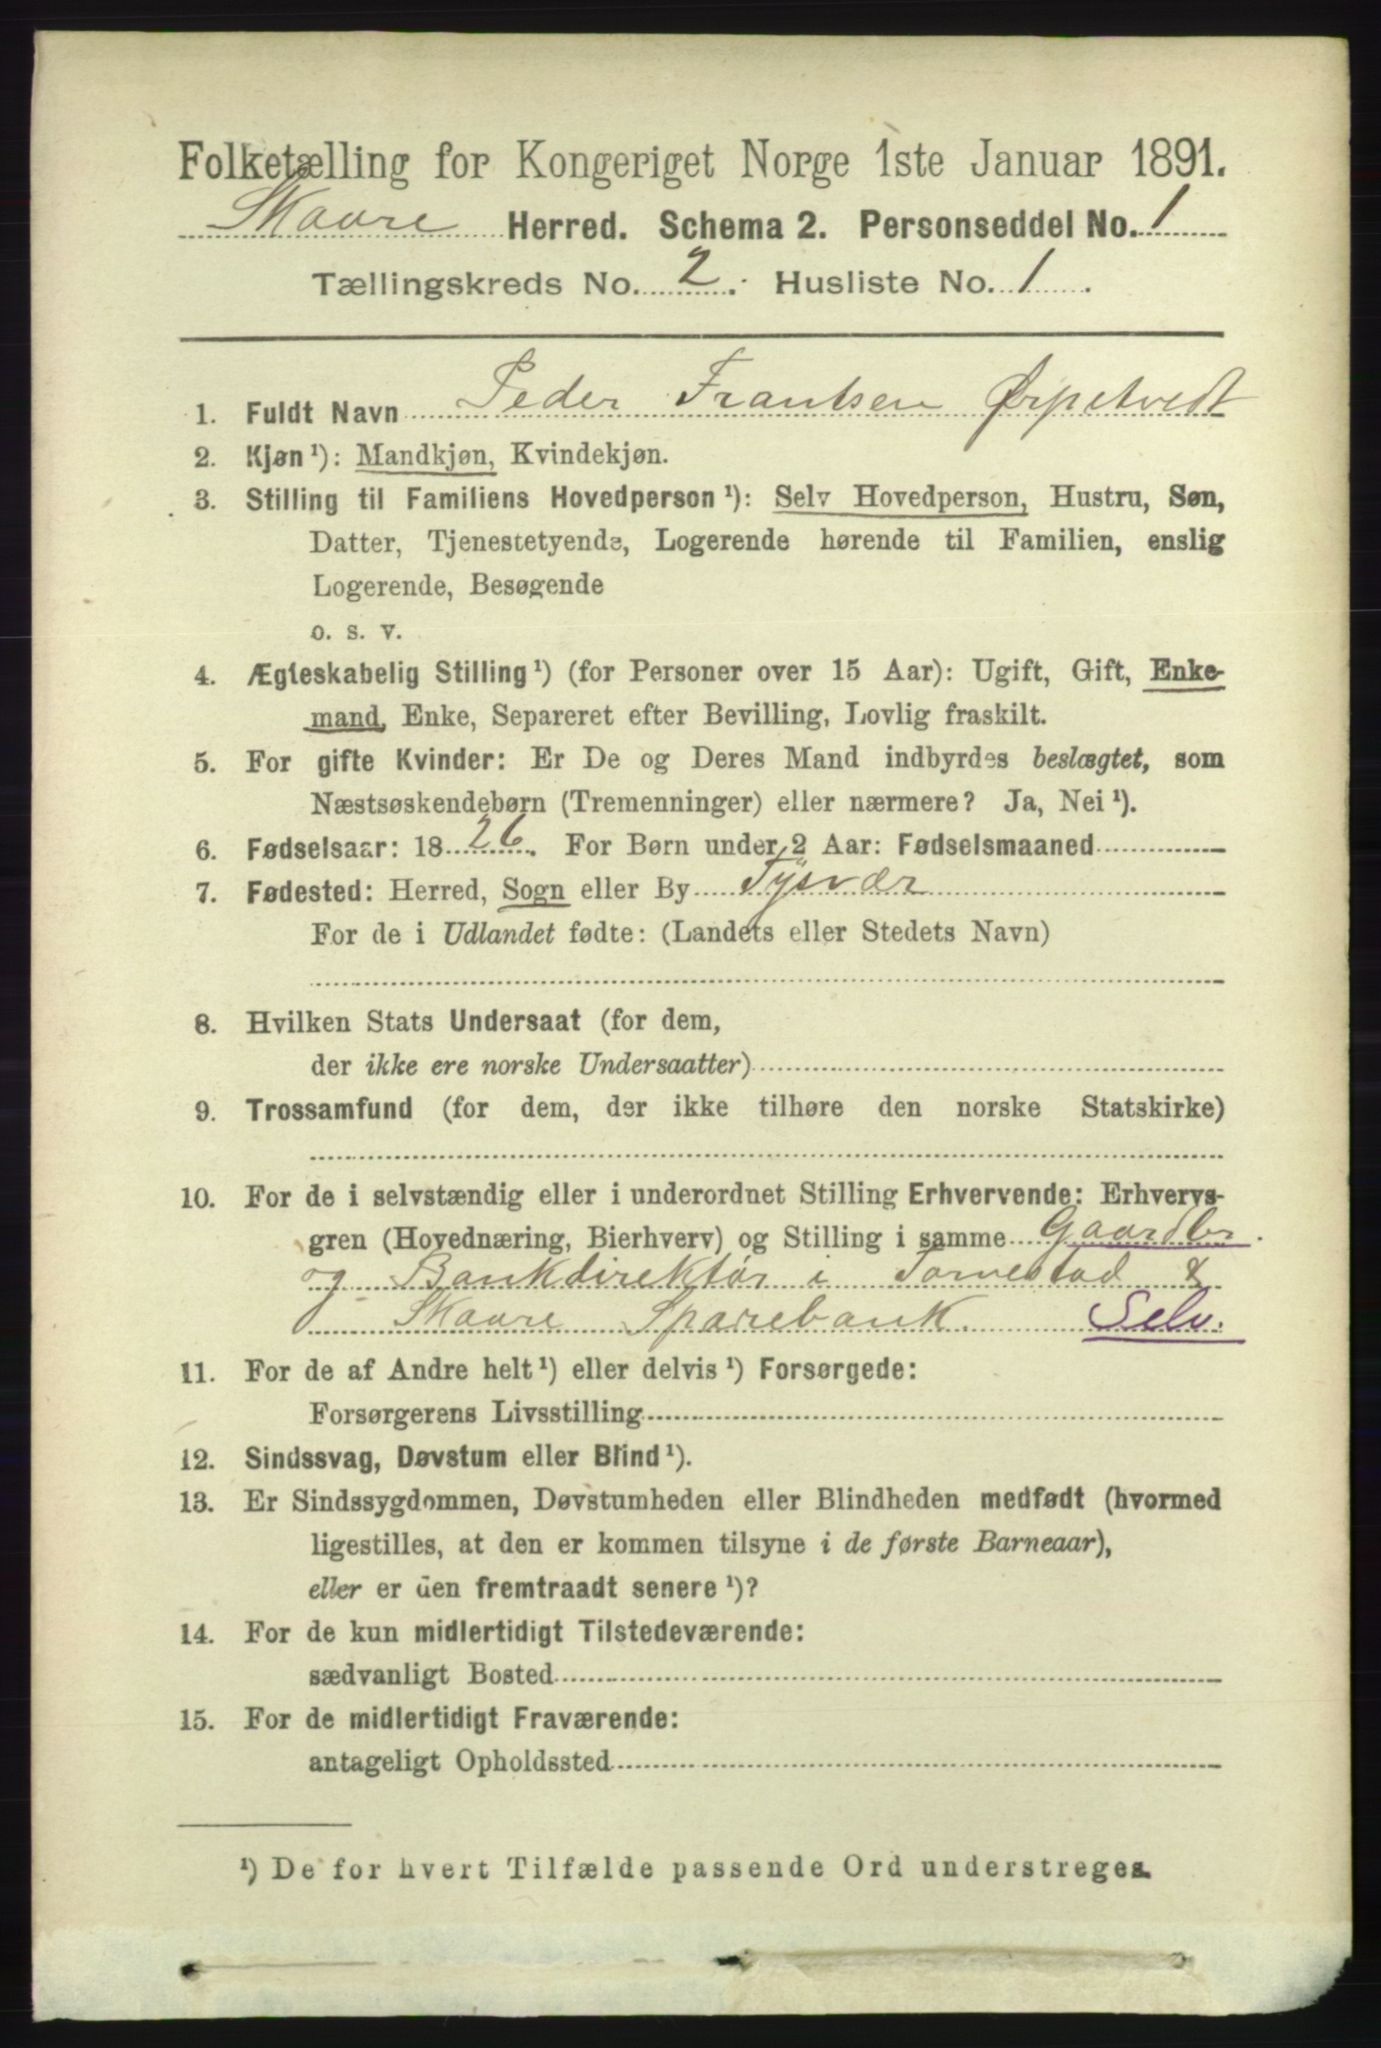 Folketælling for Kongeriget Norge 1ste Januar 1891.
Skaare Herred. Schema 2. Personseddel No. 1
Tællingskreds No. 2. Husliste No. 1.
1. Fuldt Navn Peder Frantsen Ørpetvedt
2. Kjøn ¹): Mandkjøn, Kvindekjøn.
3. Stilling til Familiens Hovedperson ¹): Selv Hovedperson, Hustru, Søn,
Datter, Tjenestetyende, Logerende hørende til Familien, enslig
Logerende, Besøgende
o. s. v.
4. Ægteskabelig Stilling ¹) (for Personer over 15 Aar): Ugift, Gift, Enke-
mand, Enke, Separeret efter Bevilling, Lovlig fraskilt.
5. For gifte Kvinder: Er De og Deres Mand indbyrdes beslægtet, som
Næstsøskendebørn (Tremenninger) eller nærmere? Ja, Nei ¹).
6. Fødselsaar: 18 26. For Børn under 2 Aar: Fødselsmaaned
7. Fødested: Herred, Sogn eller By Tysvær
For de i Udlandet fødte: (Landets eller Stedets Navn)
8. Hvilken Stats Undersaat (for dem,
der ikke ere norske Undersaatter)
9. Trossamfund (for dem, der ikke tilhøre den norske Statskirke)
10. For de i selvstændig eller i underordnet Stilling Erhvervende: Erhvervs-
gren (Hovednæring, Bierhverv) og Stilling i samme Gaardbr.
og Bankdirektør i Torvestad &
Skaare Sparebank. Selv.
11. For de af Andre helt ¹) eller delvis ¹) Forsørgede:
Forsørgerens Livsstilling
12. Sindssvag, Døvstum eller Blind ¹).
13. Er Sindssygdommen, Døvstumheden eller Blindheden medfødt (hvormed
ligestilles, at den er kommen tilsyne i de første Barneaar),
eller er den fremtraadt senere ¹)?
14. For de kun midlertidigt Tilstedeværende:
sædvanligt Bosted
15. For de midlertidigt Fraværende:
antageligt Opholdssted
¹) De for hvert Tilfælde passende Ord understreges.